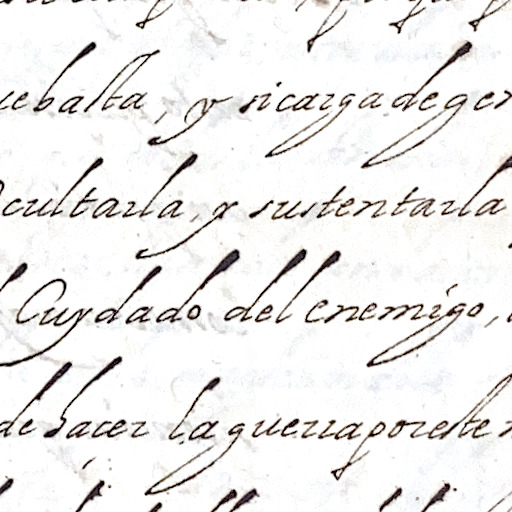 uebasta, y si carga de gen
ocultarla, y sustentarla
Cuydado del enemigo,
de hacer la guerra por este